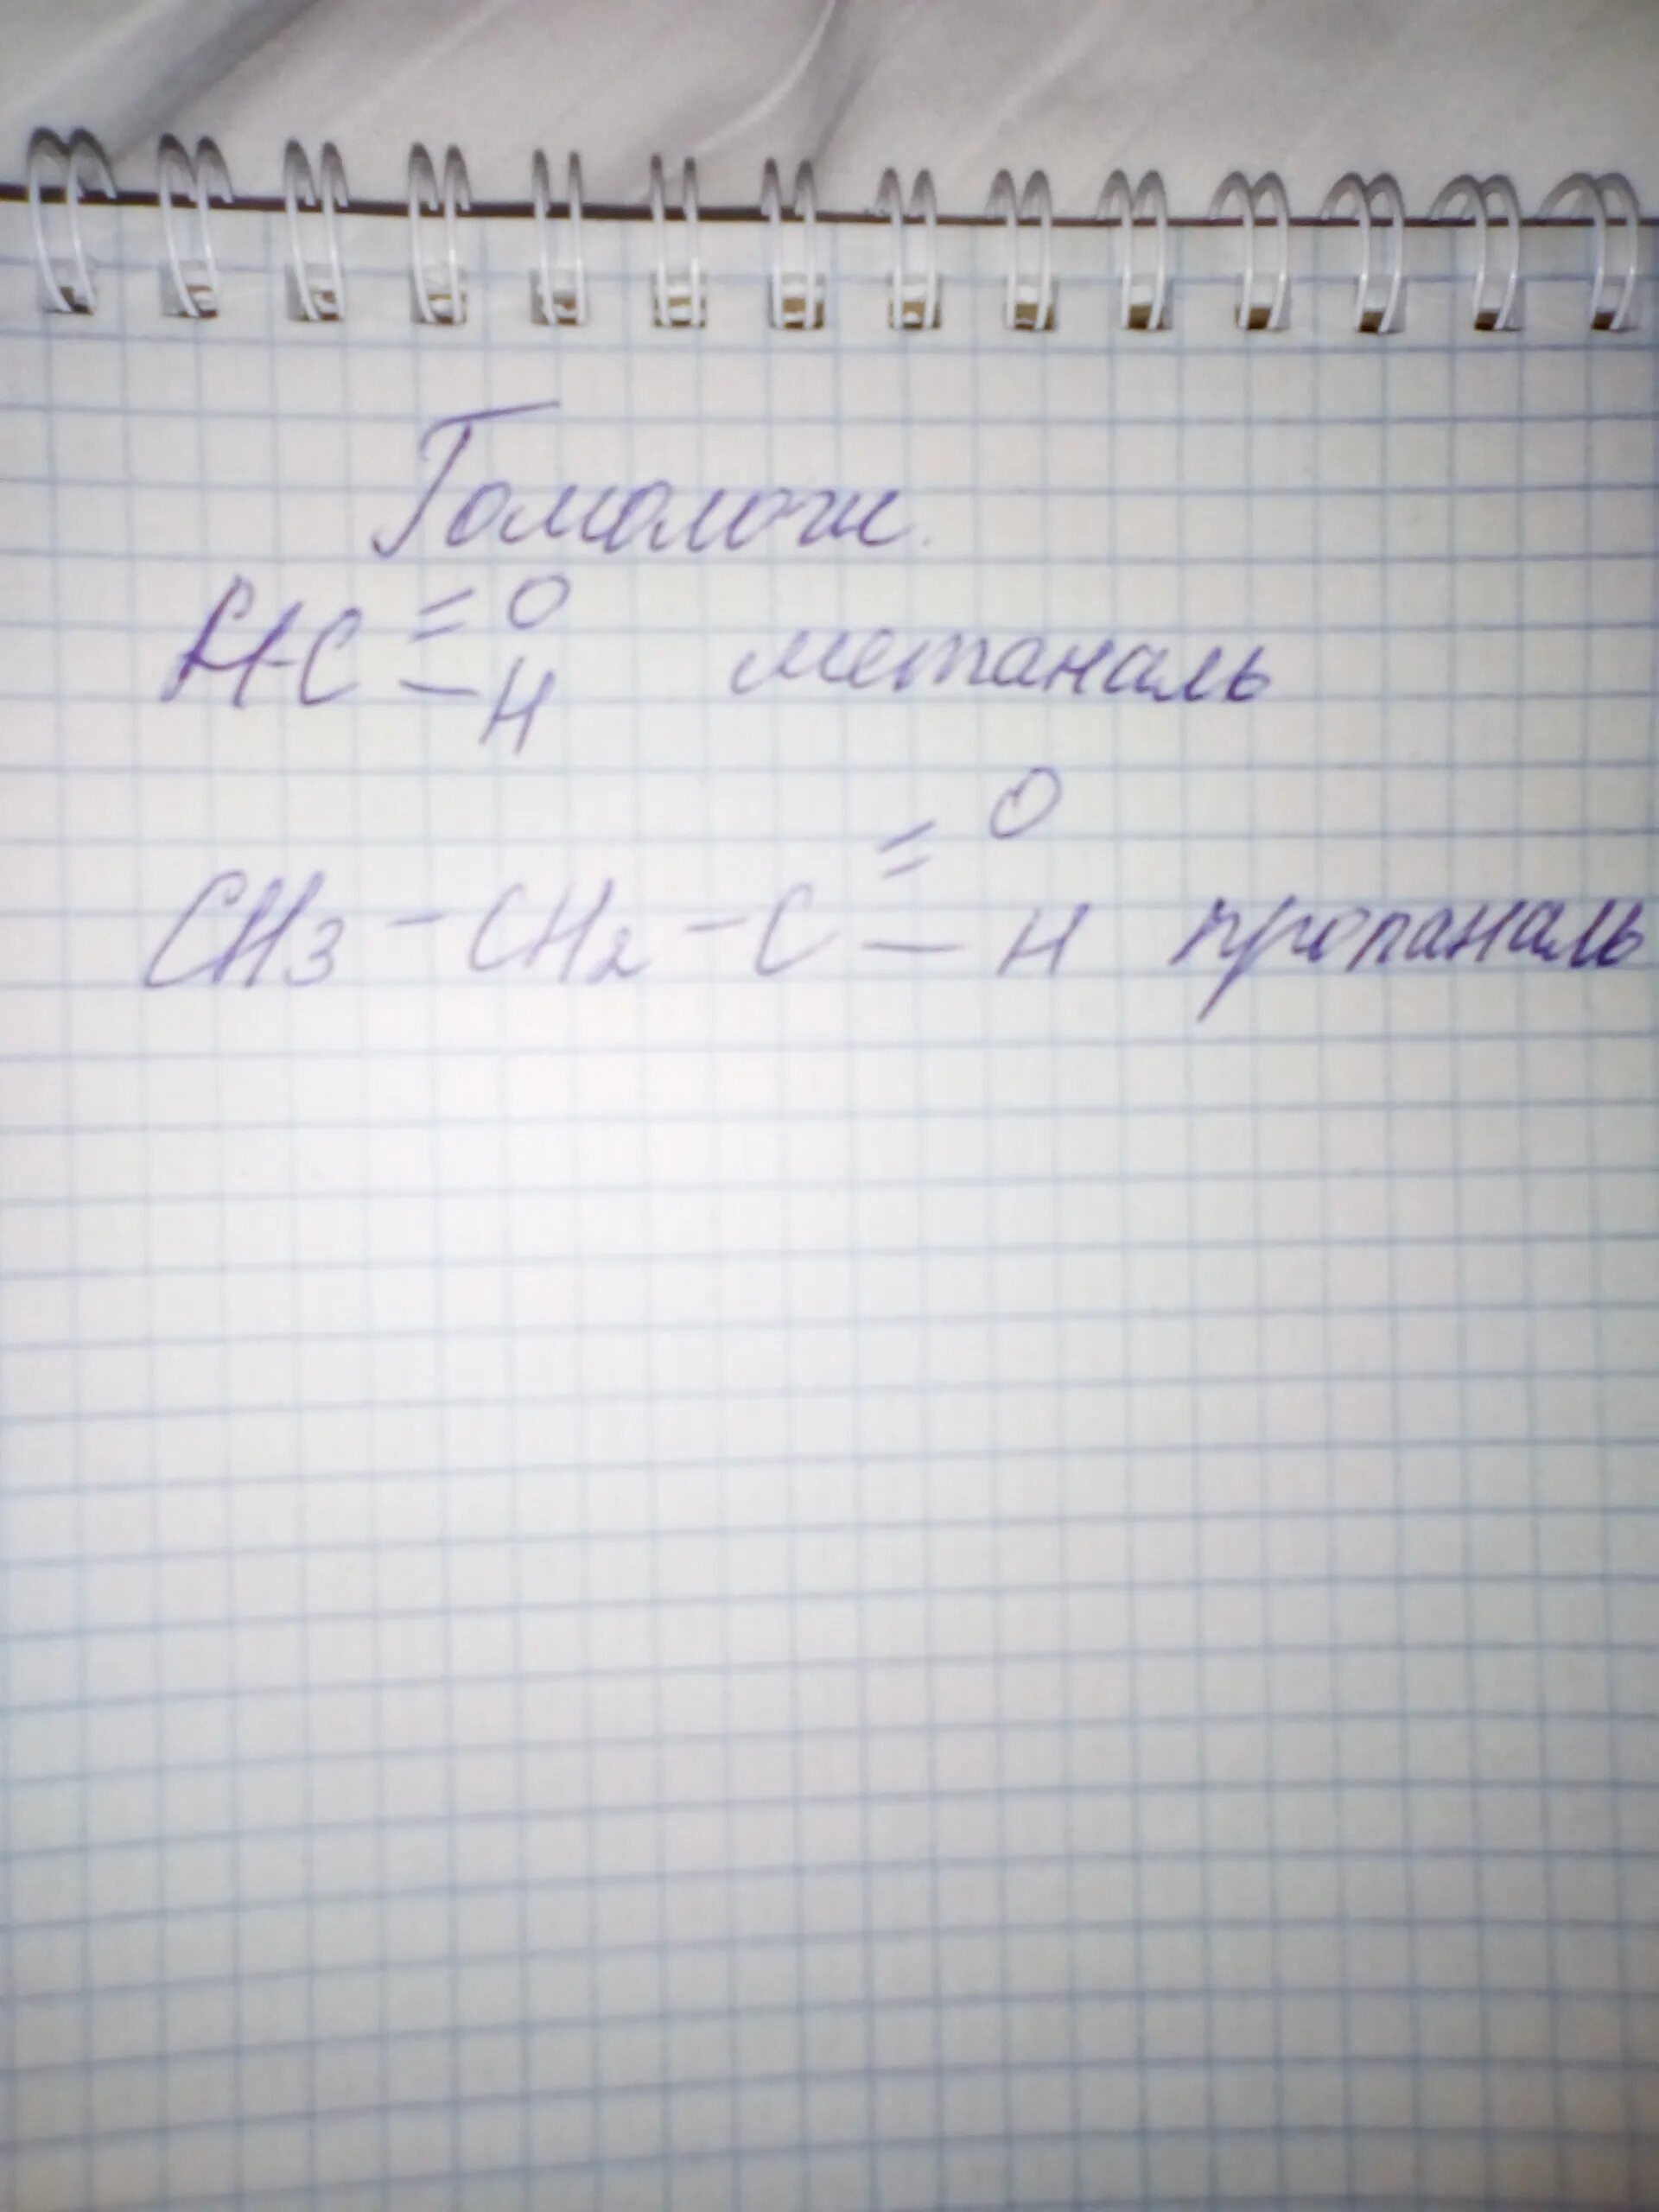 Гомологи.
H-C =O -H метаналь
CH3 - CH2 - C =O -H пропаналь